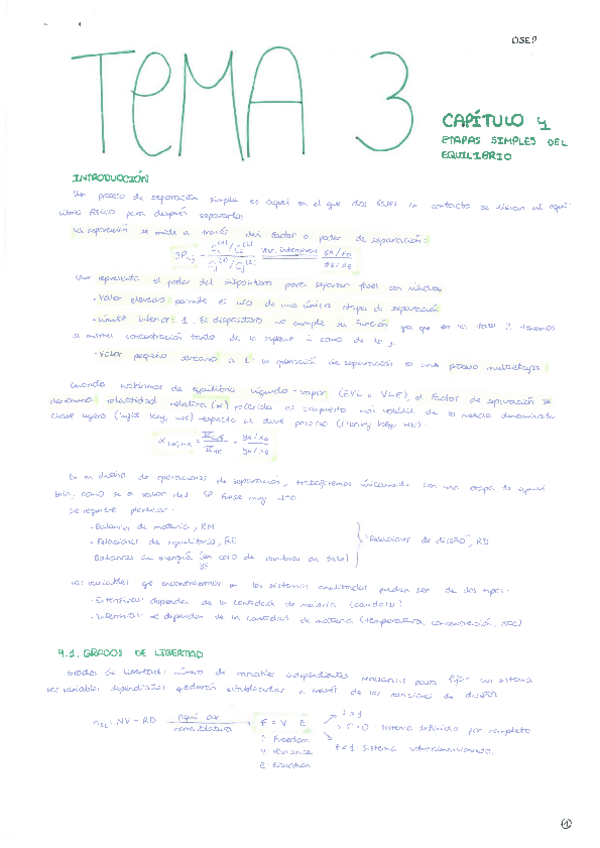 OSEP
TEMA 3
CAPÍTULO 4
ETAPAS SIMPLES DEL
EQUILIBRIO
INTRODUCCIÓN
Un proceso de separación simple es aquel en el que dos fases en contacto se llevan al equi
librio físico para después separarlas
La separación se mide a través del factor o poder de separación:
SP
Var. intensivas
representa el poder del dispositivo para separar fases con
· Valor elevado: permite el uso de una única etapa de separación
· Límite inferior: 1. El dispositivo no cumple su función ya que en la fase 2 tenemos
la misma concentración tanto de la especie i como de la j.
· Valor pequeño cercano a 1: la operación de separación es un proceso multietapa
Cuando hablamos de equilibrio líquido-vapor (ELV o VLE), el factor de separación se
denomina volatilidad relativa (α) referida al componente más volátil de la mezcla denominado
clave ligero (light key, LK) respecto al clave pesado (Heavy key, HK):
En el diseño de operaciones de separación, trabajaremos únicamente con una etapa de equili
brio, como si el valor del SP fuese muy alto
Se requiere plantear:
· Balances de materia, BM
· Relaciones de equilibrio, RE
Balances de energía (en caso de cambios en
"Relaciones de diseño", RD
Las variables que encontraremos en los sistemas analizados pueden ser de dos tipos:
· Extensivas: dependen de la cantidad de materia (caudales)
· Intensivas: no dependen de la cantidad de materia (temperatura, concentración, etc)
4.1. GRADOS DE LIBERTAD
Grados de libertad: número de variables independientes necesarias para fijar un sistema
Las variables dependientes quedarán establecidas a través de las relaciones de diseño
= NV - RD
nomenclatura
F = V - E
F: Freedom
V: Variance
E: Equation
F = 0: sistema definido por completo
F < 1: sistema sobredimensionado.
1